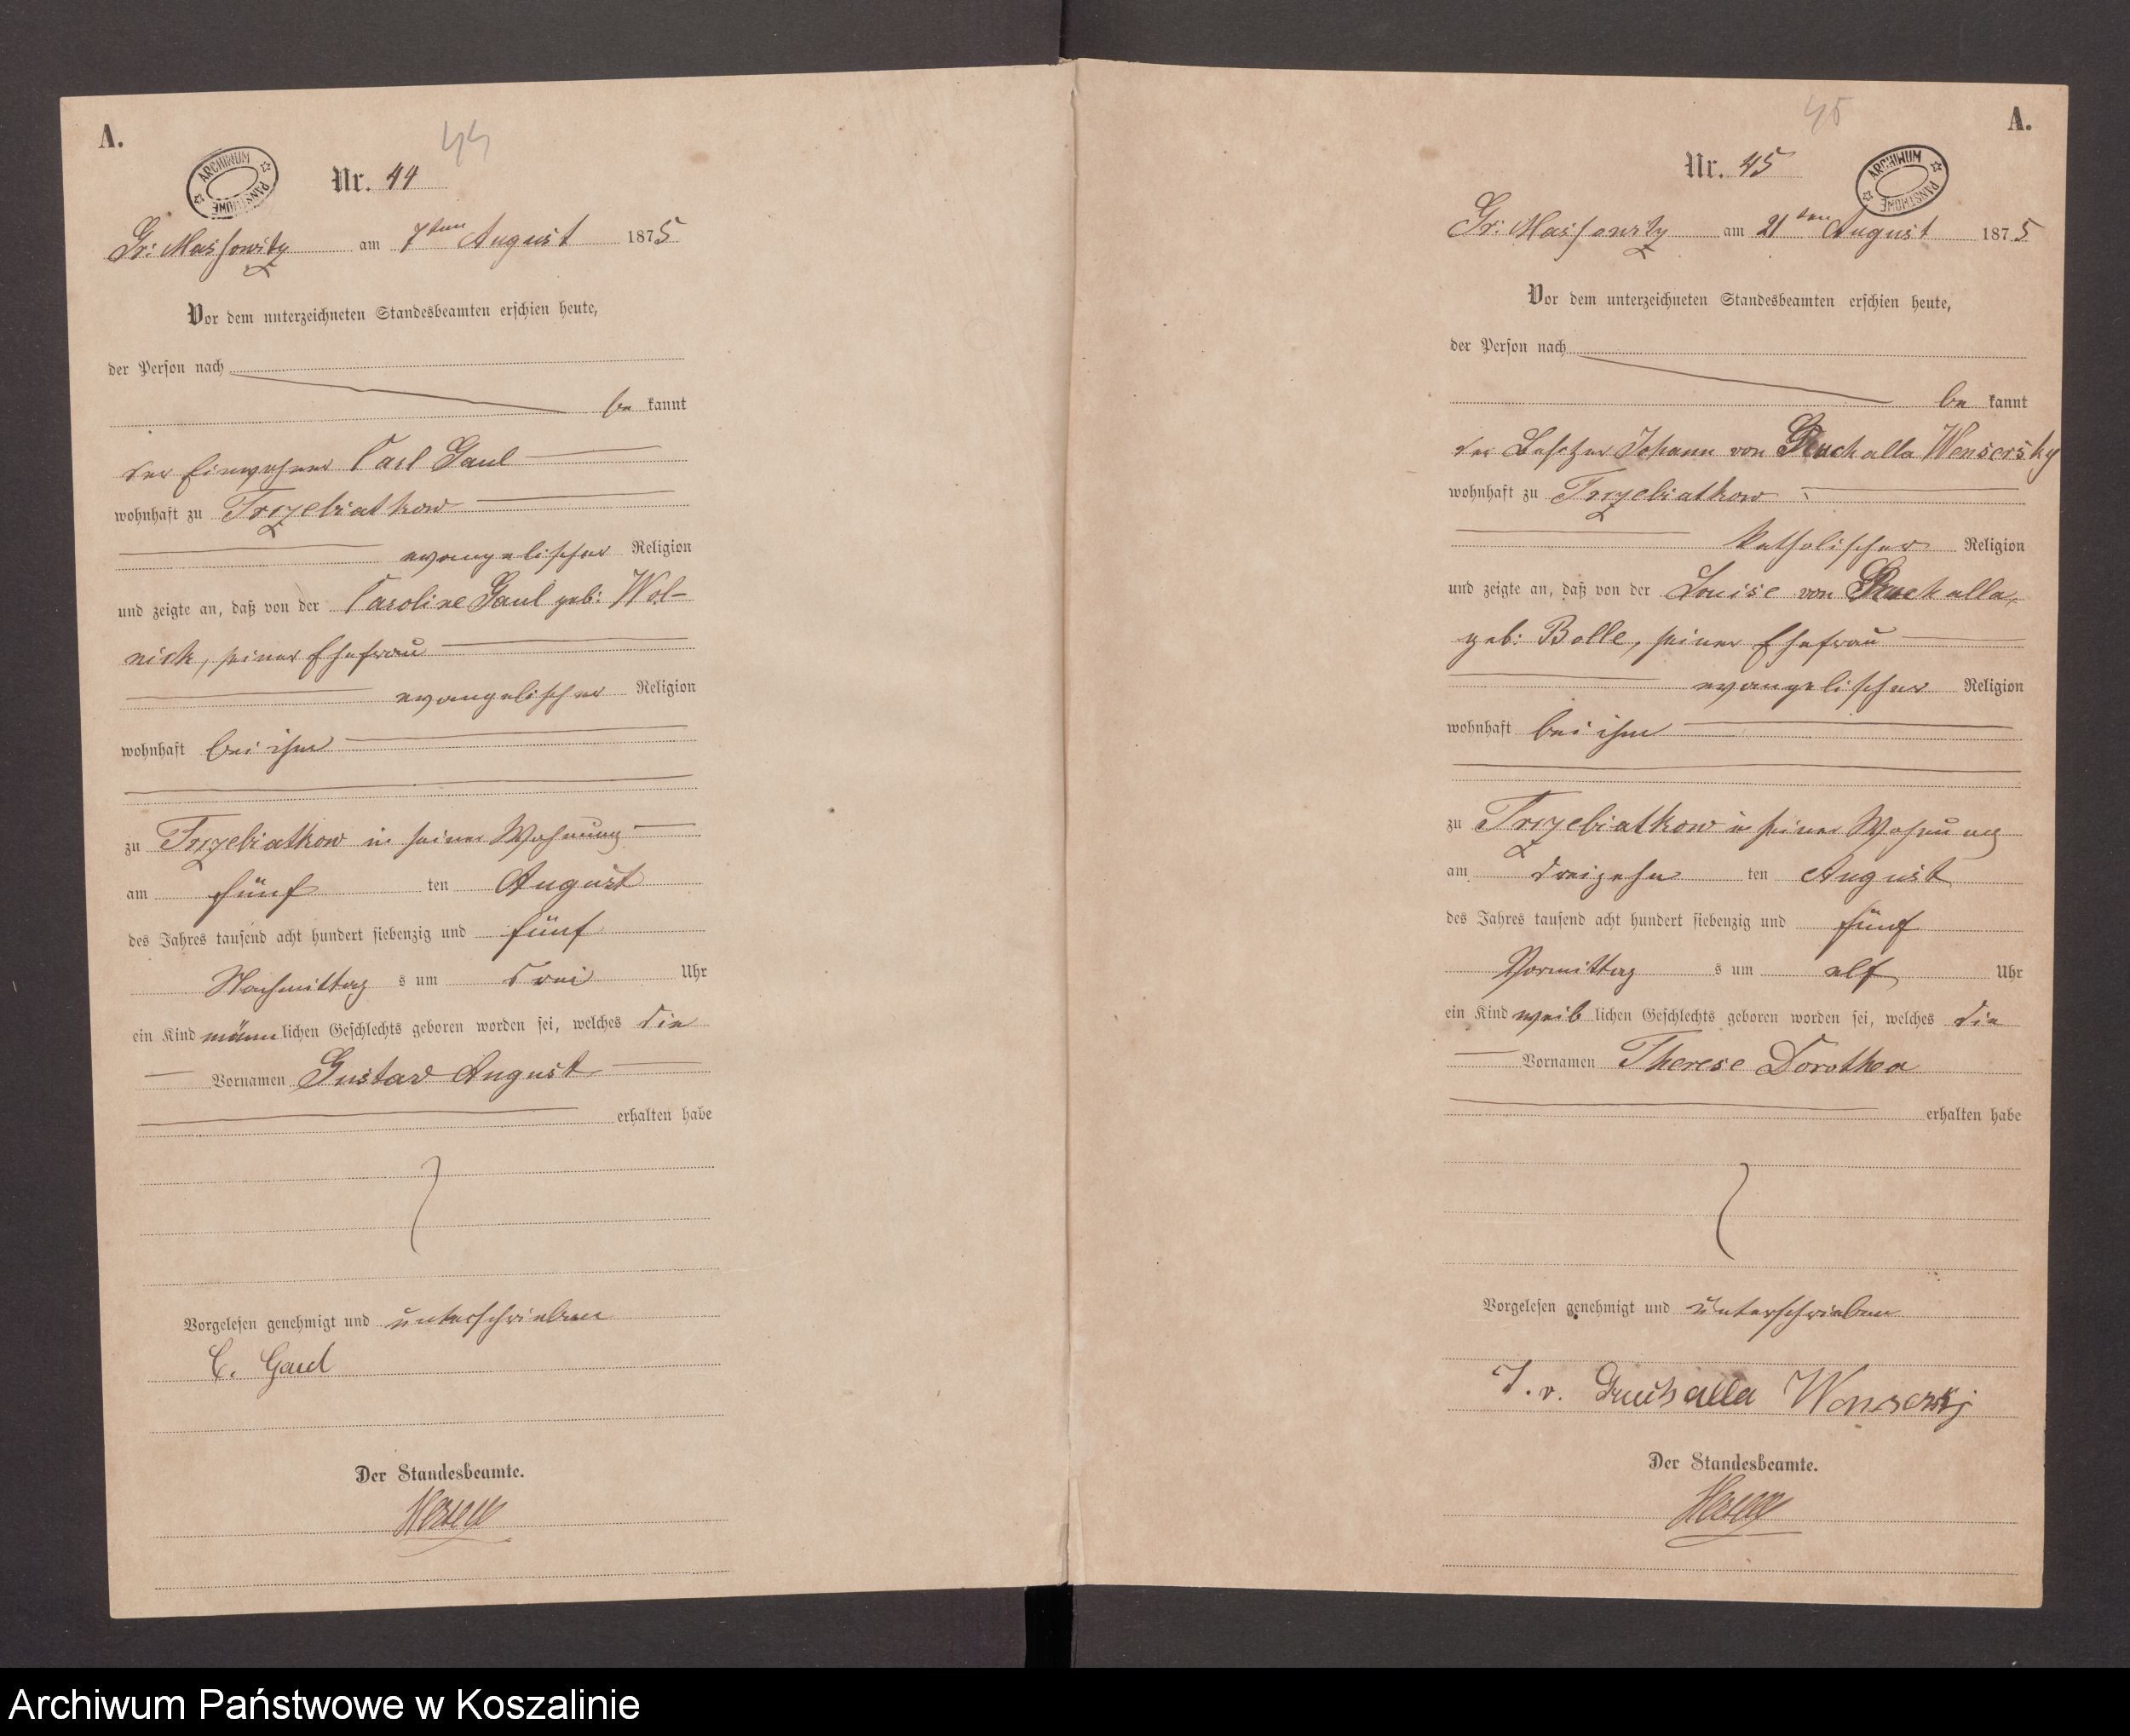 A.
44
ARCHIWUM PAŃSTWOWE
Nr. 44
Gr: Massowitz am 7ten August 1875
Vor dem unterzeichneten Standesbeamten erschien heute,
der Person nach
be kannt
der Einwohner Carl Gaul
wohnhaft zu Trzebiatkow
evangelischer Religion
und zeigte an, daß von der Caroline Gaul geb: Wol-
nick, seiner Ehefrau
evangelischer Religion
wohnhaft bei ihm
zu Trzebiatkow in seiner Wohnung
am fünf ten August
des Jahres tausend acht hundert siebenzig und fünf
Nachmittag s um drei Uhr
ein Kind männ lichen Geschlechts geboren worden sei, welches die
Vornamen Gustav August
erhalten habe
Vorgelesen genehmigt und unterschrieben
C. Gaul
Der Standesbeamte.
45
A.
Nr. 45
ARCHIWUM PAŃSTWOWE
Gr: Massowitz am 21ten August 1875
Vor dem unterzeichneten Standesbeamten erschien heute,
der Person nach
be kannt
der Besitzer Johann von Wensersky
wohnhaft zu Trzebiatkow
katholischer Religion
und zeigte an, daß von der Louise von
geb: Bolle, seiner Ehefrau
evangelischer Religion
wohnhaft bei ihm
zu Trzebiatkow in seiner Wohnung
am dreizehn ten August
des Jahres tausend acht hundert siebenzig und fünf
Vormittag s um elf Uhr
ein Kind weib lichen Geschlechts geboren worden sei, welches die
Vornamen Therese Dorothea
erhalten habe
Vorgelesen genehmigt und unterschrieben
J. v.
Der Standesbeamte.
Archiwum Państwowe w Koszalinie